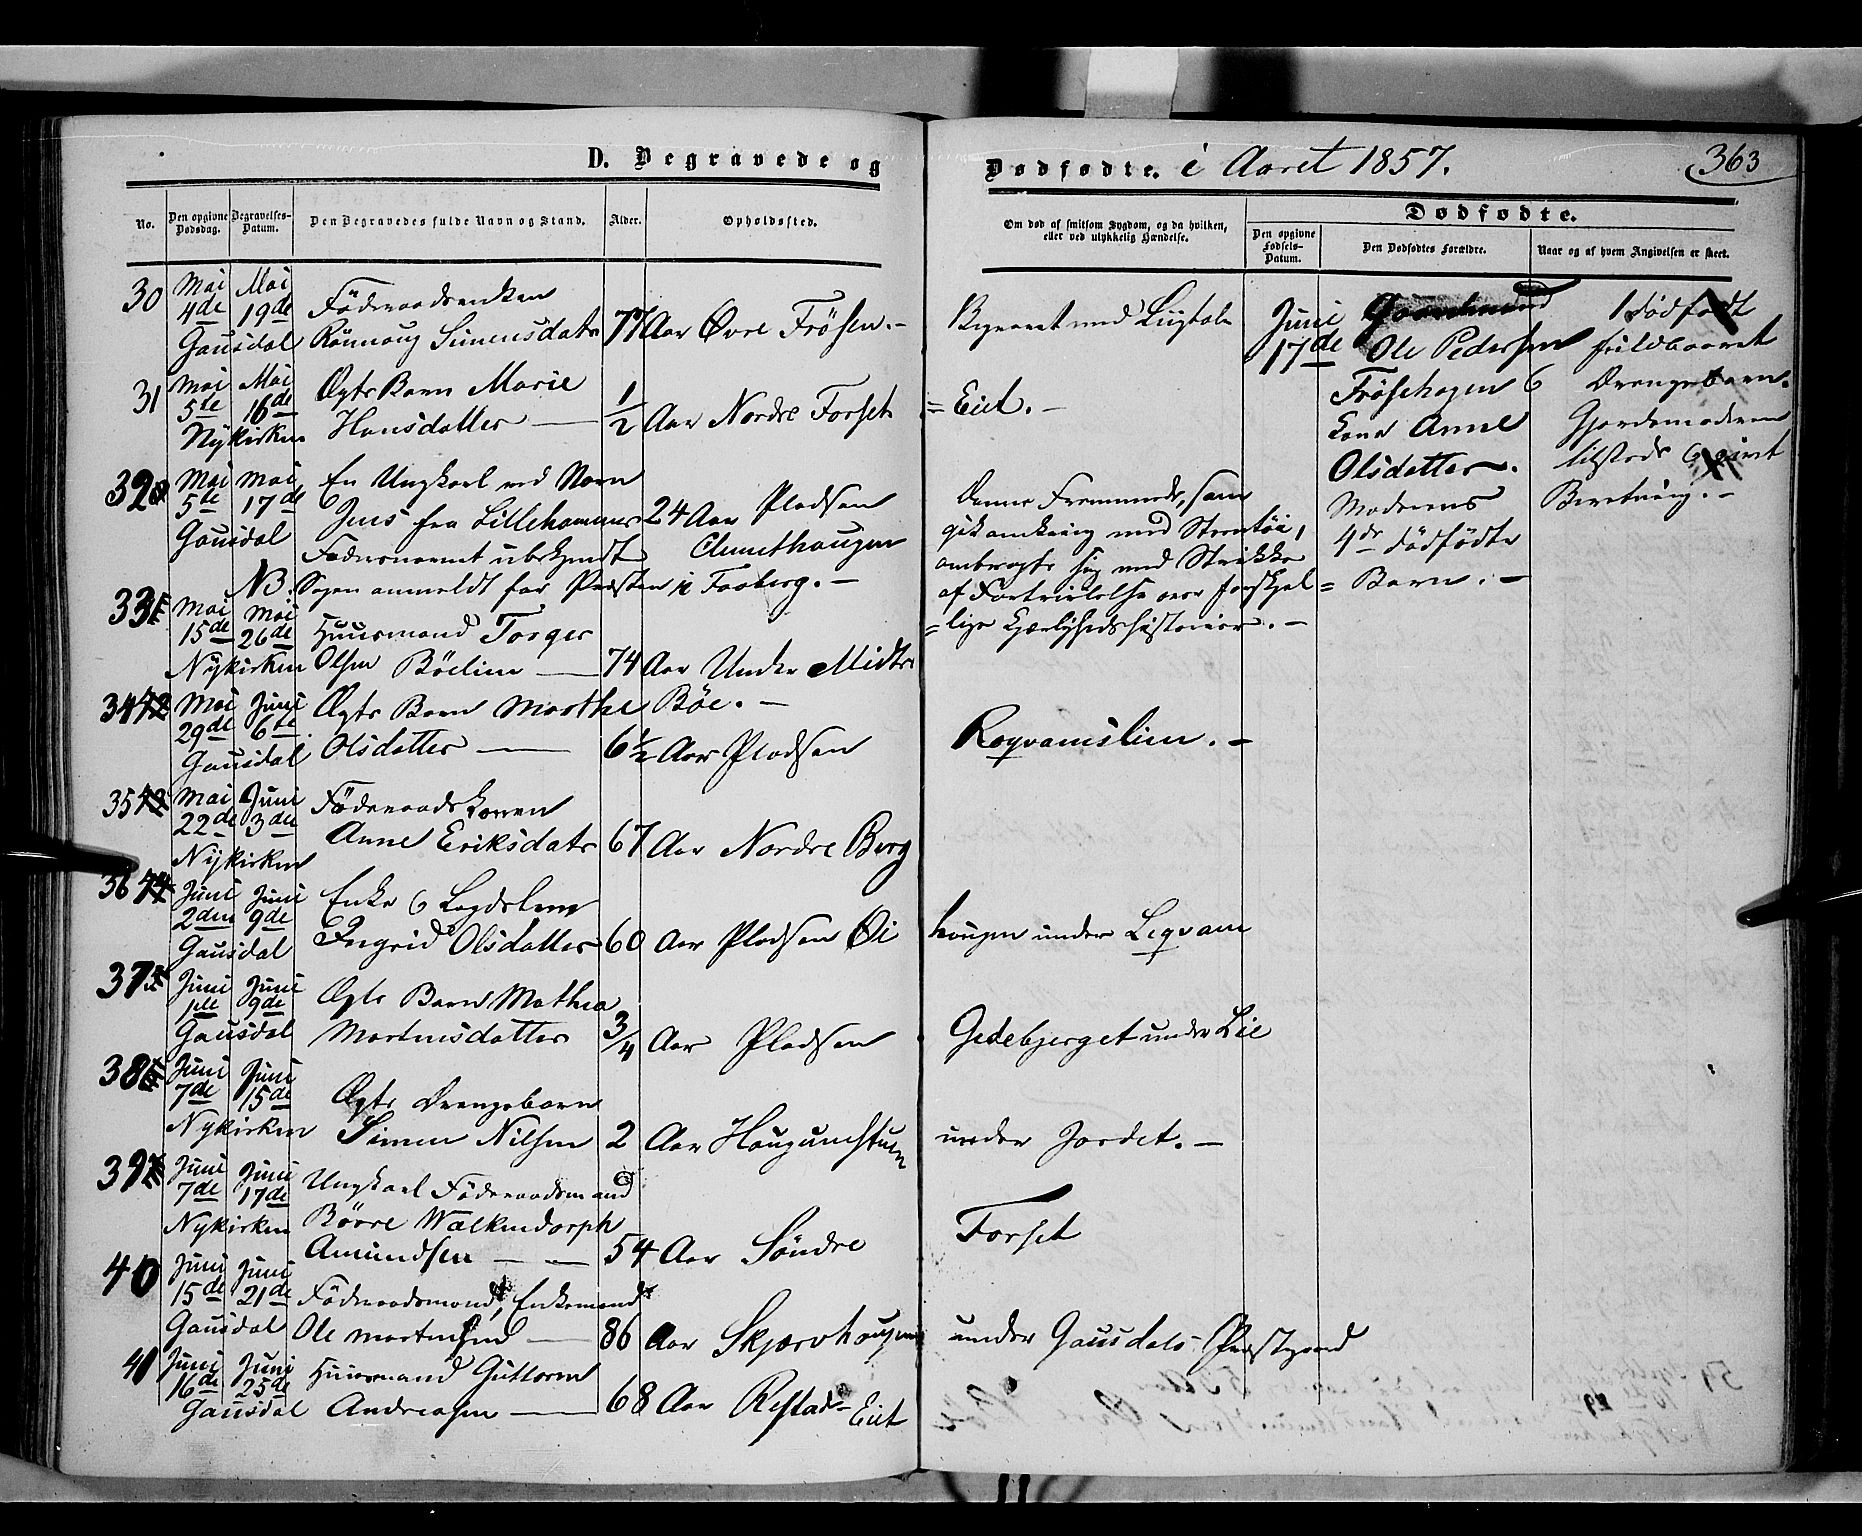 D. Begravede og
Dødfødte. i Aaret 1857.
363
No.
Den opgivne Dødsdag.
Begravelses-Datum.
Den Begravedes fulde Navn og Stand.
Alder.
Opholdssted.
Om død af smitsom Sygdom, og da hvilken,
eller ved ulykkelig Hændelse.
Dødfødte.
Den opgivne Fødsels-Datum.
Den Dødfødtes Forældre.
Naar og af hvem Angivelsen er skeet.
30 Mai Mai
4de 19de Föderaadsenken
Gausdal Rönnoug Simensdatr 77 Aar Övre Frösen.-
31 Mai Mai Ægte Barn Marie
5te 16de Hansdatter 1/2 Aar Nordre Forset = Eiet.-
Nykirken
32 Mai Mai En Ungkarl ved Navn
5te 17de Jens fra Lillehammer 24 Aar Pladsen
Gausdal Fadernavnet ubekjendt
NB. Sagen anmeldt for Præsten i Faaberg.-
Denne Fremmede, som
gik omkring med
ombragte sig med Strikke
af Fortvivlelse over forskjel
=lige Kjærlighedshistorier.-
33 Mai Mai
15de 26de Huusmand Torger
Nykirken Olsen Böelien 74 Aar Under Midtre
Böe.-
34 Mai Juni Ægte Barn Marthe
29de 6te Olsdatter 6 1/2 Aar Pladsen Roqvamslien.-
Gausdal
35 Mai Juni Föderaadskonen
22de 3die Anne Eriksdatr 67 Aar Nordre Berg
Nykirken
36 Juni Juni Enke & Lægdslem
2den 9de Ingrid Olsdatter 60 Aar Pladsen Öi
hougen under Leqvam
Gausdal
37 Juni Juni Ægte Barn Mathea
1ste 9de
Gausdal Martinsdatter 3/4 Aar Pladsen Gedebjerget under Lie
38 Juni Juni
7de 15de Ægte Drengebarn
Nykirken Simen Nilsen 2 Aar Haugumstuen under Jordet.-
39 Juni Juni
7de 17de Ungkarl Föderaadsmand
Nykirken Börre Walkendorph
Amundsen 54 Aar Söndre Forset
40 Juni Juni
15de 21de Föderaadsmand, Enkemand
Gausdal Ole Martinsen 86 Aar Skjærvhougen under Gausdals Præstgaard
41 Juni Juni Huusmand Guttorm
16de 25de
Gausdal Andreasen 68 Aar Restad-Eiet
Juni
17de
Gaardmand
Ole Pedersen
Frösehagen &
Kone Anne
Olsdatter.
Moderens
4de dödfödte
Barn.-
1 Dödfödt
fuldbaaret
Drengebarn.
Gjordemoderen
tilstede & givet
Beretning.-